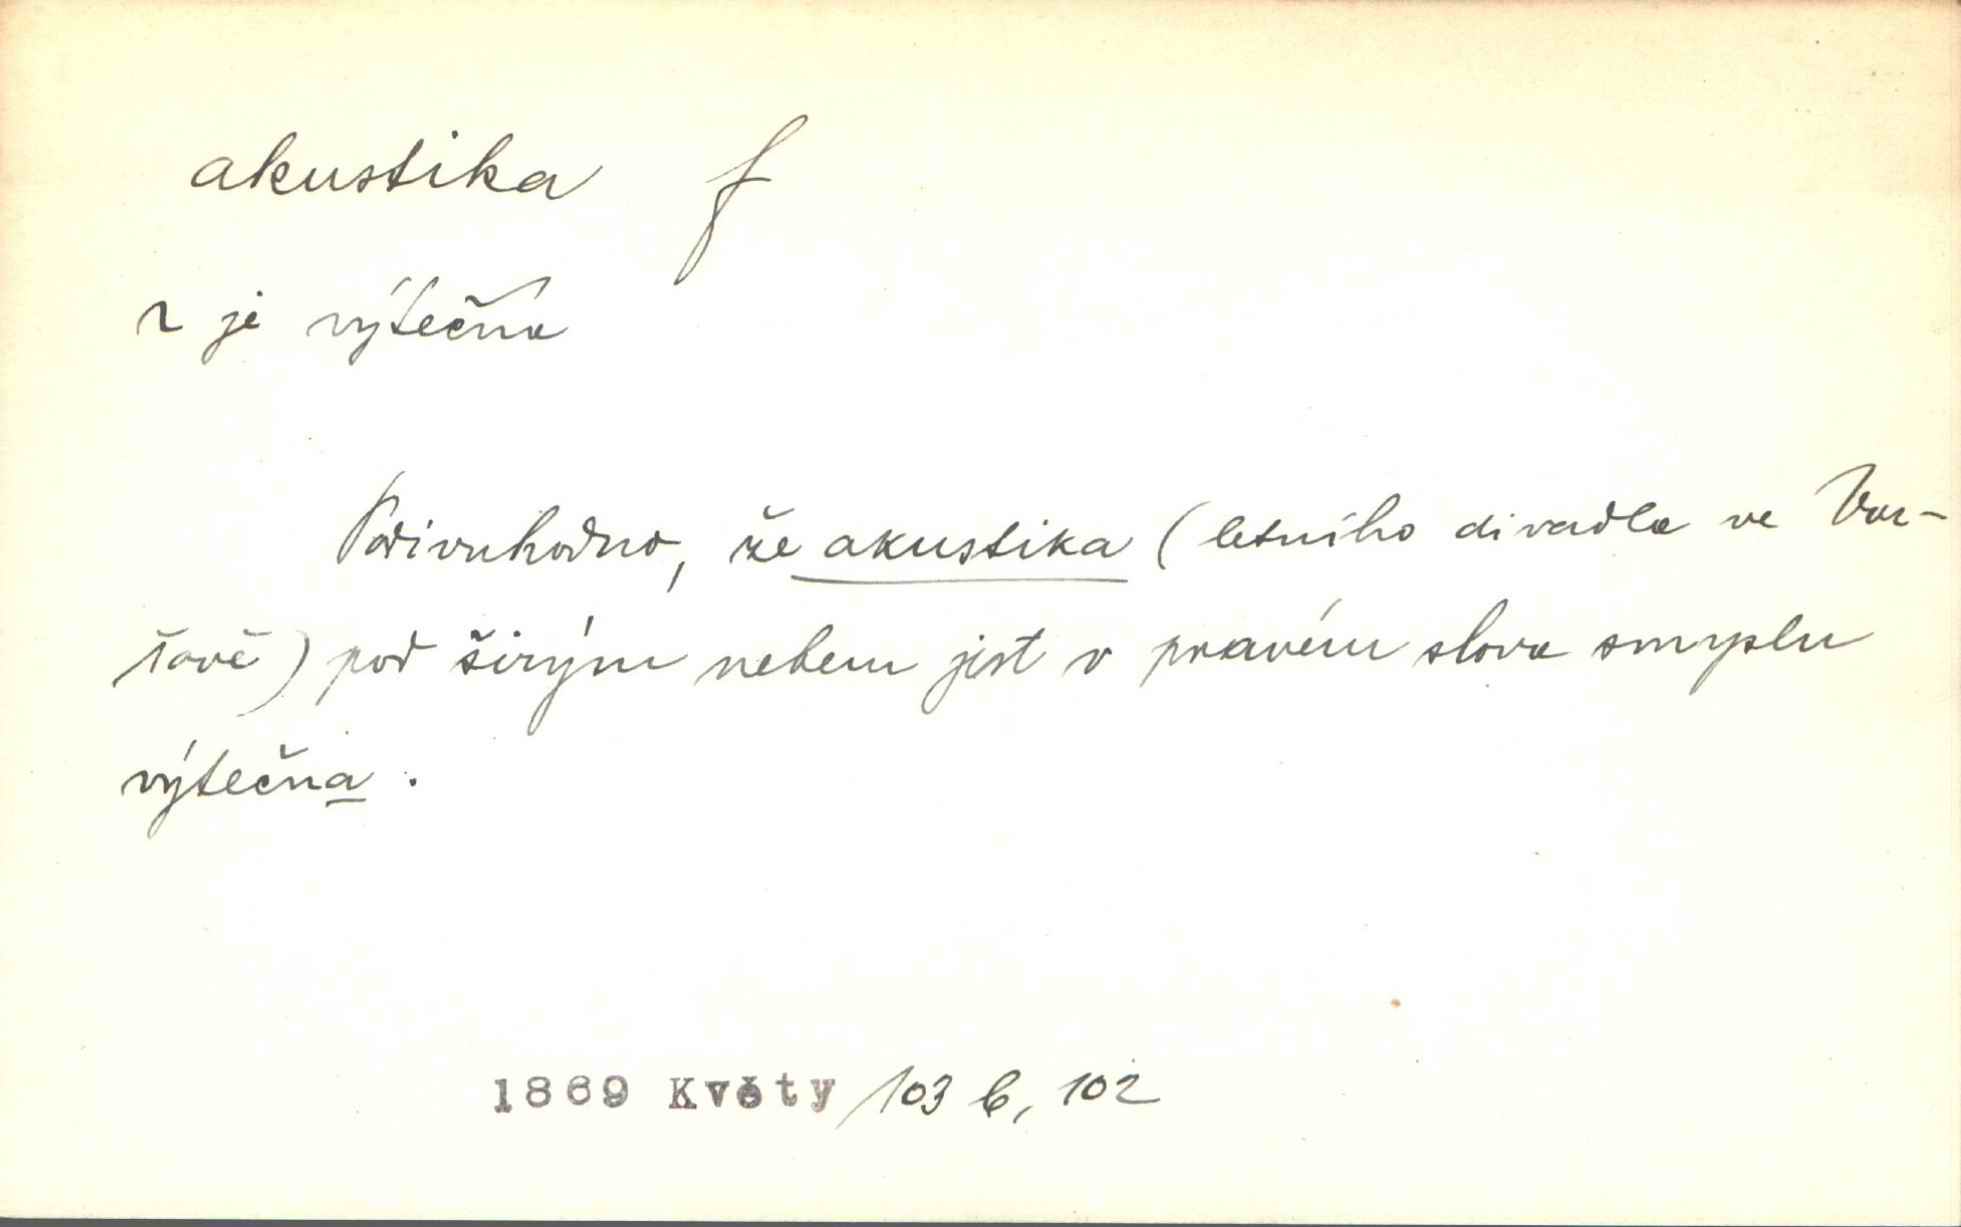 akustika f
~ je výtečná
Podivuhodno, že akustika (letního divadla ve Var-
šavě) pod širým nebem jest v pravém slova smyslu
výtečna.
1869 Květy /103 b, 102